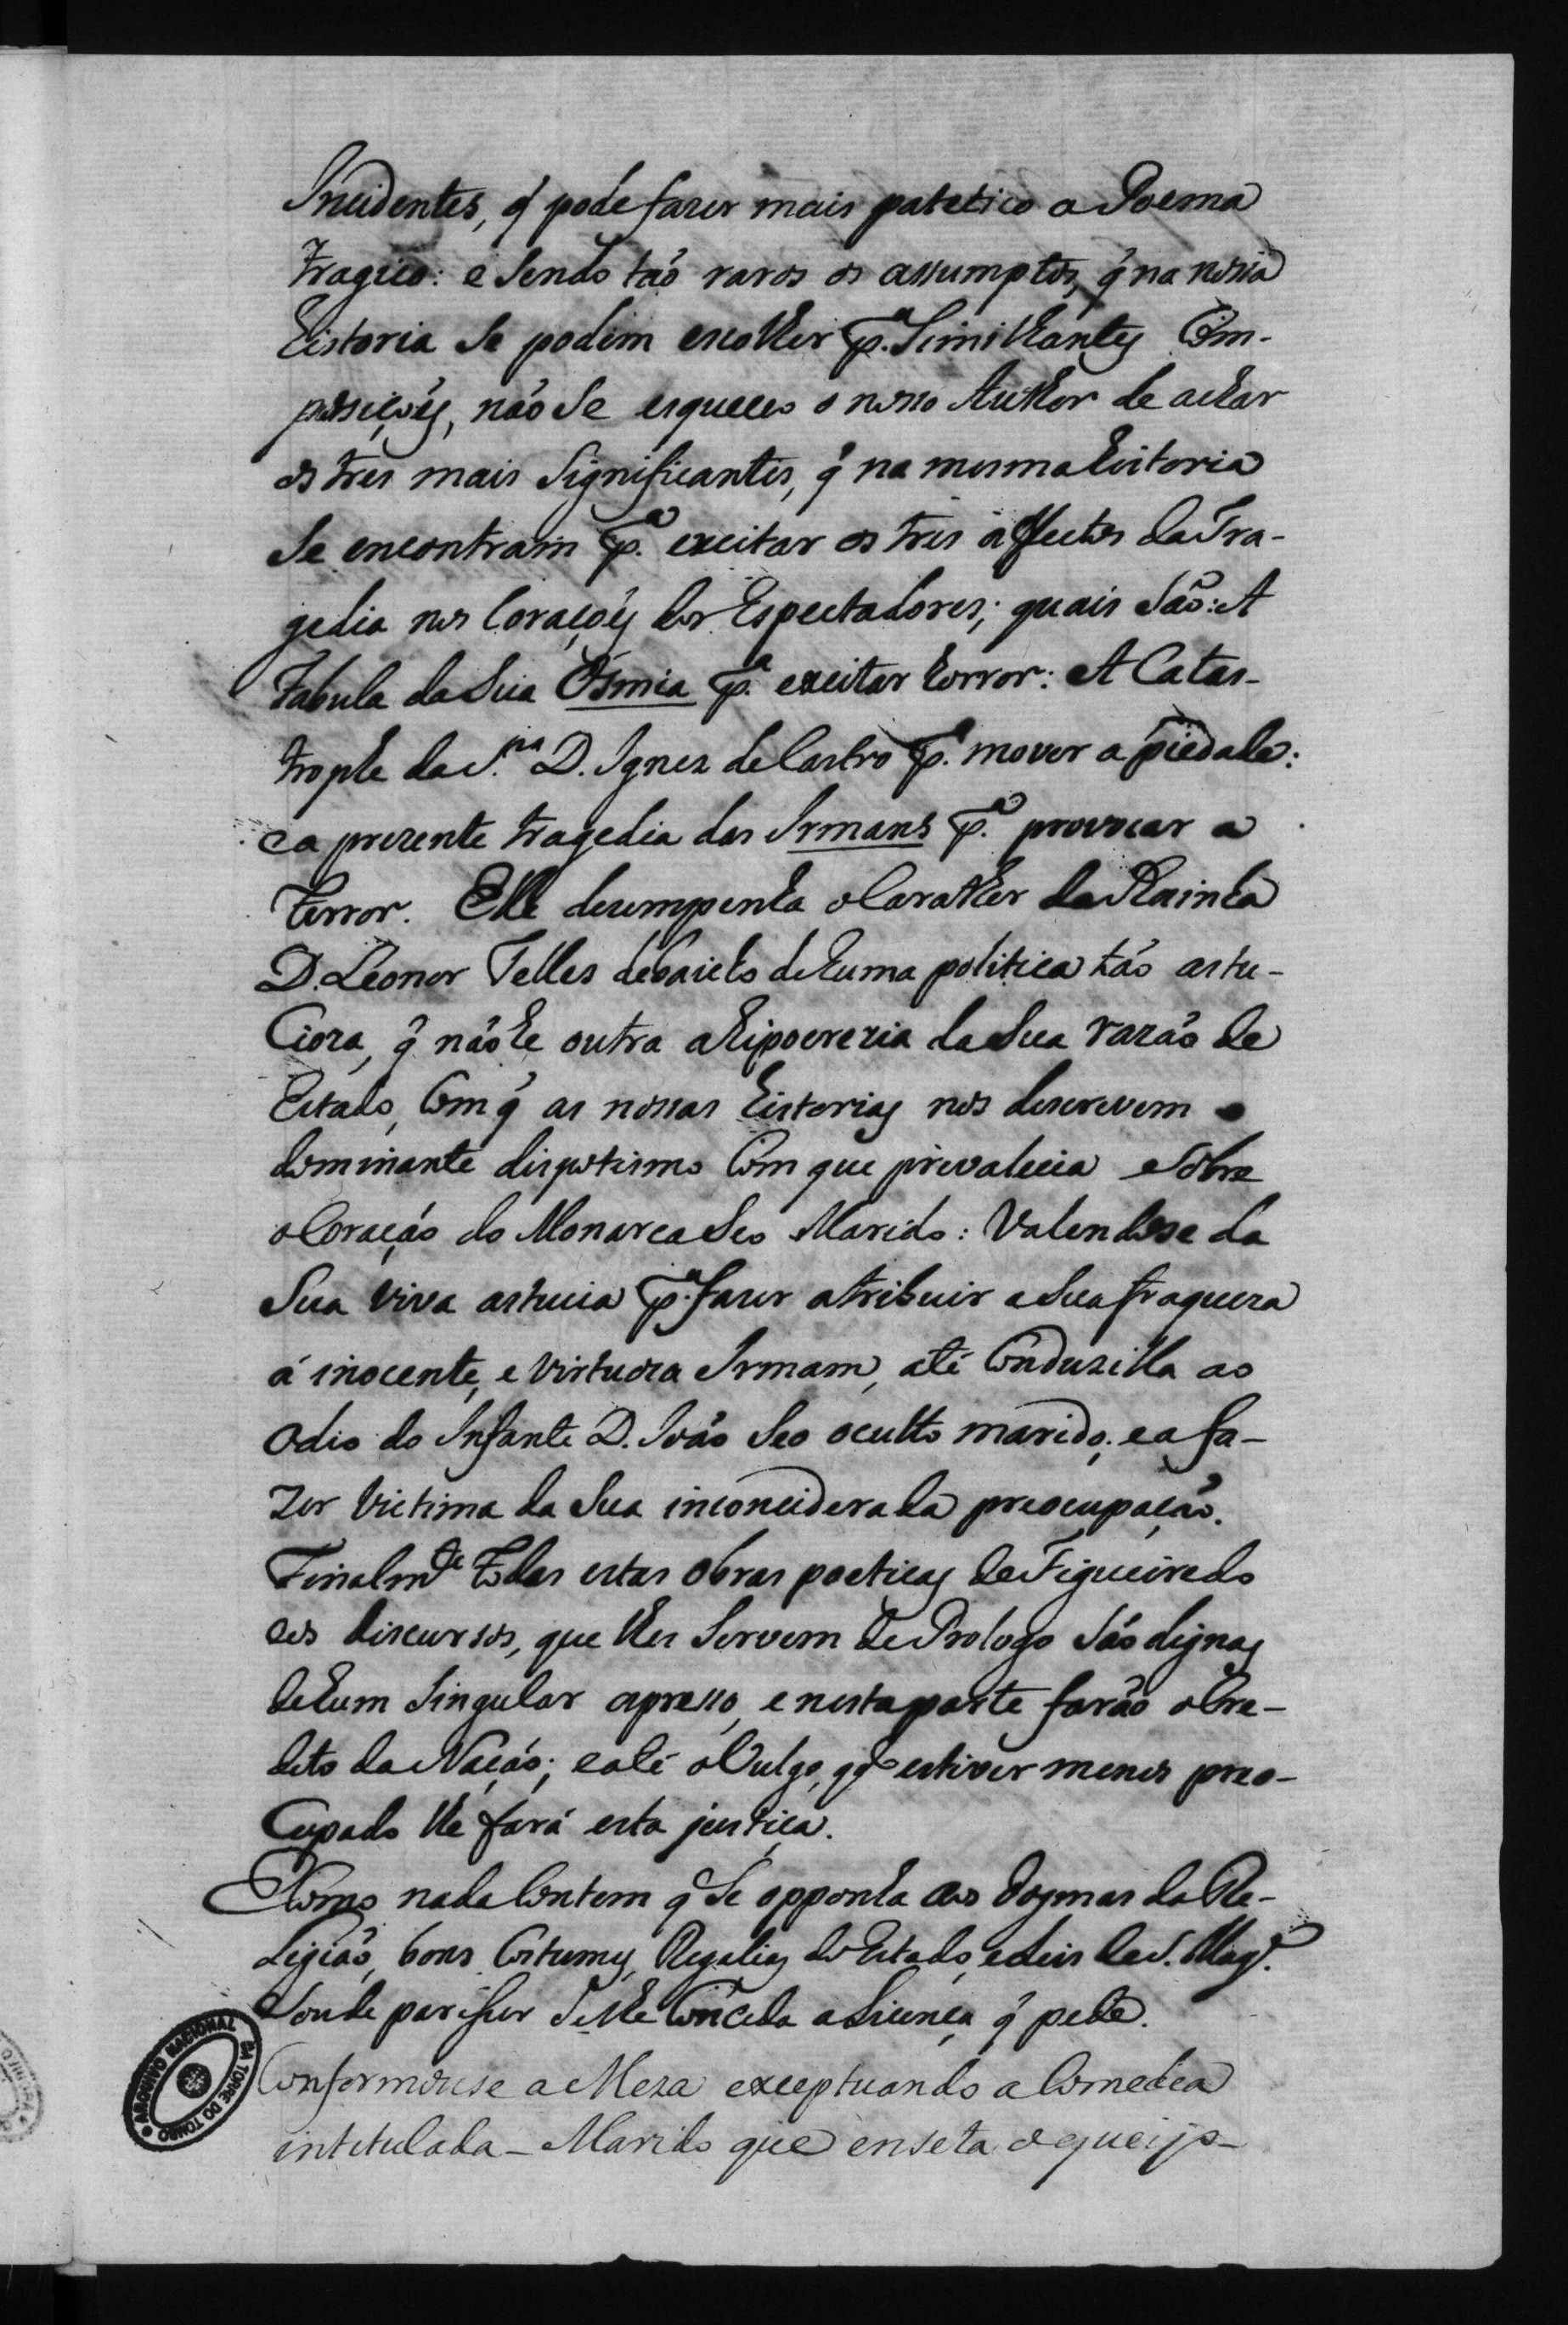 Incidentes, q̃ pode fazer mais patetico o Poema
Tragico: e sendo taõ raros os assumptos, q̃ na nossa
historia se podem escolher p.ª similhantes Com-
posiçoẽs, naõ se esqueceo o nosso Author de achar
os tres mais significantes, q̃ na mesma historia
se encontram p.ª excitar os tres affectos da Tra-
gedia nos Coraçoẽs dos Espectadores; quais saõ: A
Fabula da sua Osmia p.ª excitar horror: A Catas-
trophe da S.ra D. Ignez de Castro p.ª mover a piedade:
e a prezente tragedia das Irmans p.ª provocar a
terror. Elle dezempenha o Carather da Rainha
D. Leonor Telles debaicho de huma politica taõ astu-
cioza, q̃ naõ he outra a hipocrezia da sua razaõ de
Estado, Com q̃ as nossas historias nos descrevem o
dominante dispotismo Com que prevalecia sobre
o Coraçaõ do Monarca seo Marido: Valendose da
sua viva astucia p.ª fazer atribuir a sua fraqueza
á inocente, e virtuoza Irmam, até Conduzilla ao
odio do Infante D. Joaõ seo oculto marido, e a fa-
zer victima da sua inconciderada preocupaçaõ.
Finalm.te todas estas obras poeticas de Figueiredo
e os discursos, que lhes servem de Prologo saõ dignas
de hum singular apresso, e nesta parte faraõ o Cre-
dito da Naçaõ; e até o Vulgo, q̃ estiver menos preo-
cupado lhe fará esta justiça.
E Como nada Contem q̃ se opponha aos Dogmas da Re-
ligiaõ, bons Costumes, Regalias do Estado, e Leis de S. Mag.e
sou de parecer se lhe Conceda a Licença q̃ pede.
Conformouse a Meza exceptuando a Comedea
intitulada - Marido que enseta o queijo -
ARQUIVO NACIONAL DA TORRE DO TOMBO